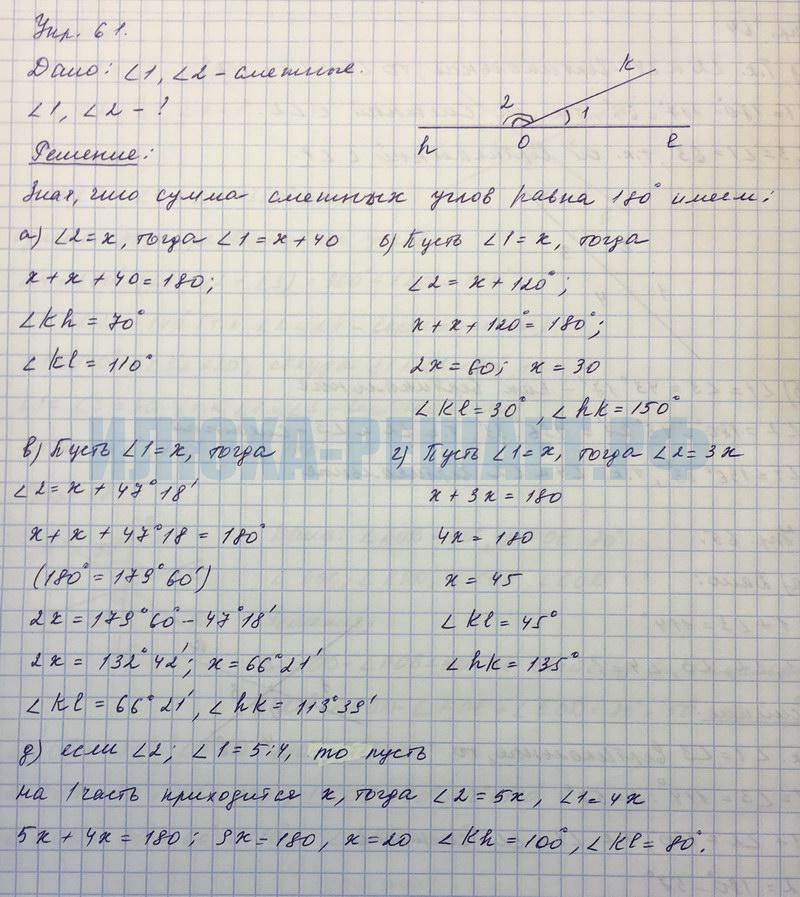 Упр. 61.
Дано: ∠1, ∠2 – смежные.
∠1, ∠2 – ?
k
2
1
h
O
l
Решение:
Зная, что сумма смежных углов равна 180° имеем:
а) ∠2 = x, тогда ∠1 = x + 40
x + x + 40 = 180;
∠kh = 70°
∠kl = 110°
б) Пусть ∠1 = x, тогда
∠2 = x + 120°;
x + x + 120° = 180°;
2x = 60; x = 30
∠kl = 30°, ∠hk = 150°
ИЛЮХА-РЕШАЕТ.РФ
в) Пусть ∠1 = x, тогда
∠2 = x + 47°18'
x + x + 47°18 = 180°
(180° = 179°60')
2x = 179°60° – 47°18'
2x = 132°42'; x = 66°21'
∠kl = 66°21', ∠hk = 113°39'
г) Пусть ∠1 = x, тогда ∠2 = 3x
x + 3x = 180
4x = 180
x = 45
∠kl = 45°
∠hk = 135°
д) если ∠2; ∠1 = 5:4, то пусть
на 1 часть приходится x, тогда ∠2 = 5x, ∠1 = 4x
5x + 4x = 180; 9x = 180, x = 20 ∠kh = 100°, ∠kl = 80°.